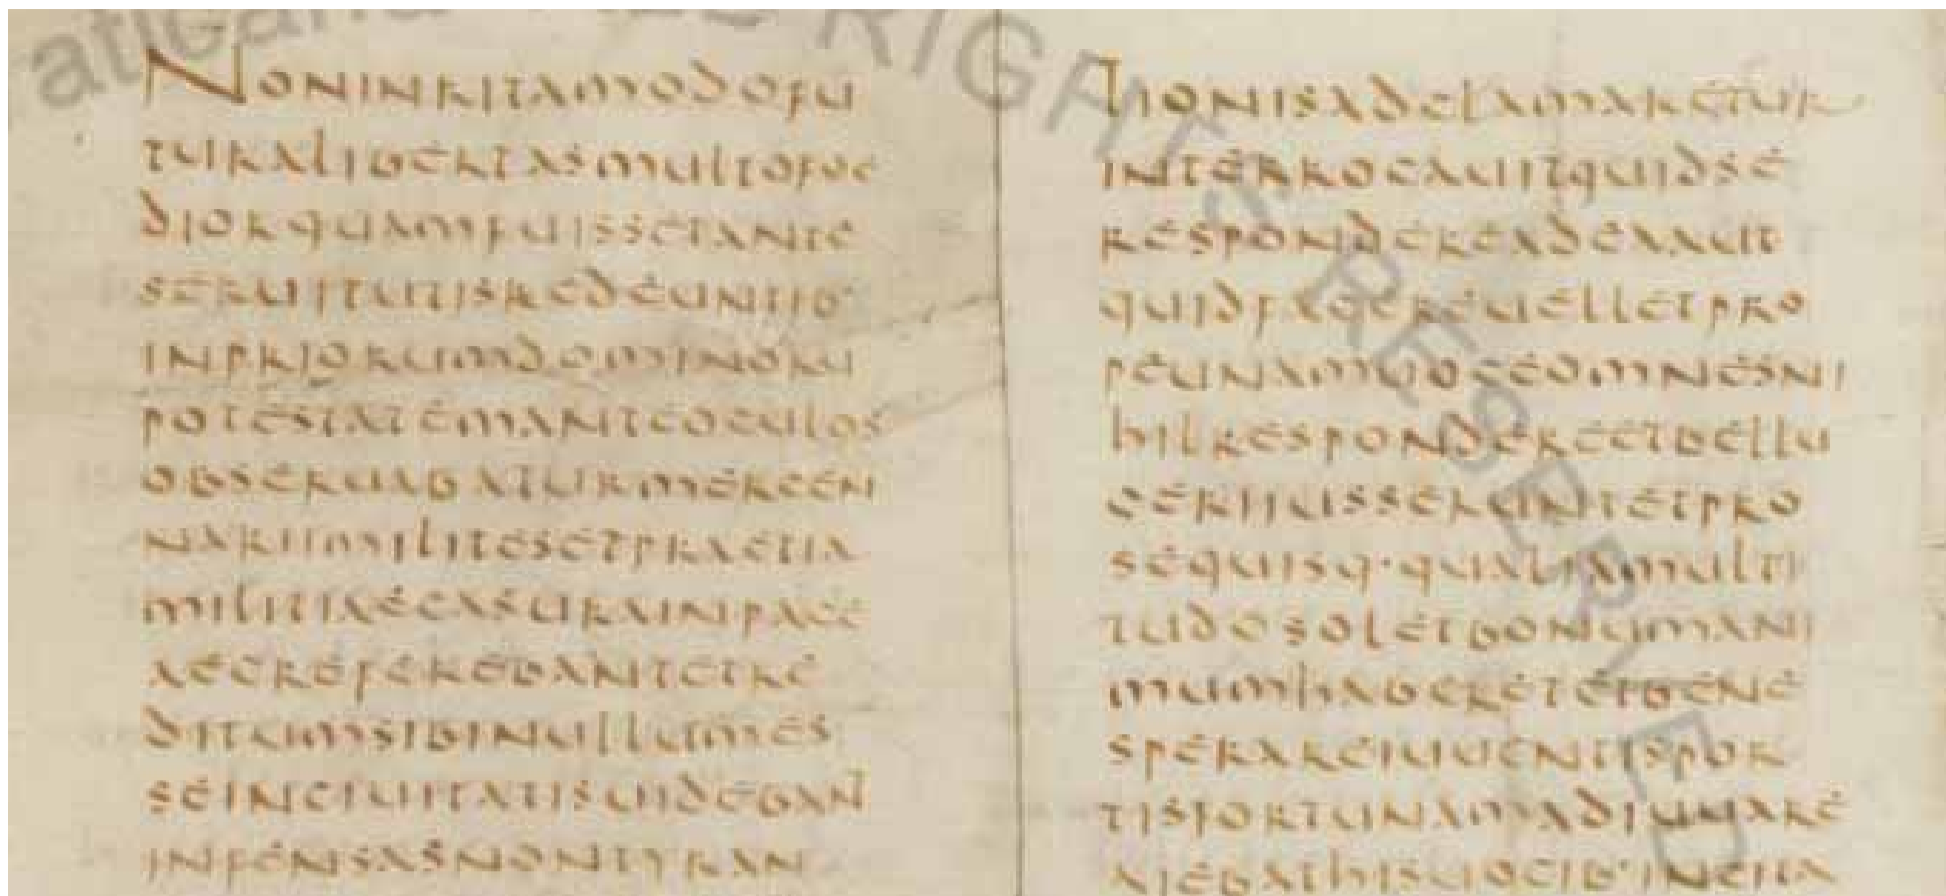 NONINRITAMODOFU
TURALIBERTASMULTOFOE
DIORQUAMFUISSETANTE
SERUITUTISREDEUNTIB·
INPRIORUMDOMINORU
POTESTATEMANTEOCULOS
OBSERUABATURMERCEN
NARIIMILITESETPRAETIA
MILITIAECASURAINPACE
AEGREFEREBANTETRE
DITUMSIBINULLUMES
SEINCIUITATISUIDEBANT
INFENSASNONTYRAN
TIONISADCLAMARETUR
INTERROGAUITQUIDSE
RESPONDEREADEAAUT
QUIDFACEREUELLETPRO
PEUNAMUOCEOMNESNI
HILRESPONDEREETBELLU
GERIIUSSERUNTETPRO
SEQUISQ·QUALIAMULTI
TUDOSOLETBONUMANI
MUMHABERETETBENE
SPERAREIUUENTISFOR
TISFORTUNAMADIUUARE
AIEBATHISUOCIB·INCITA